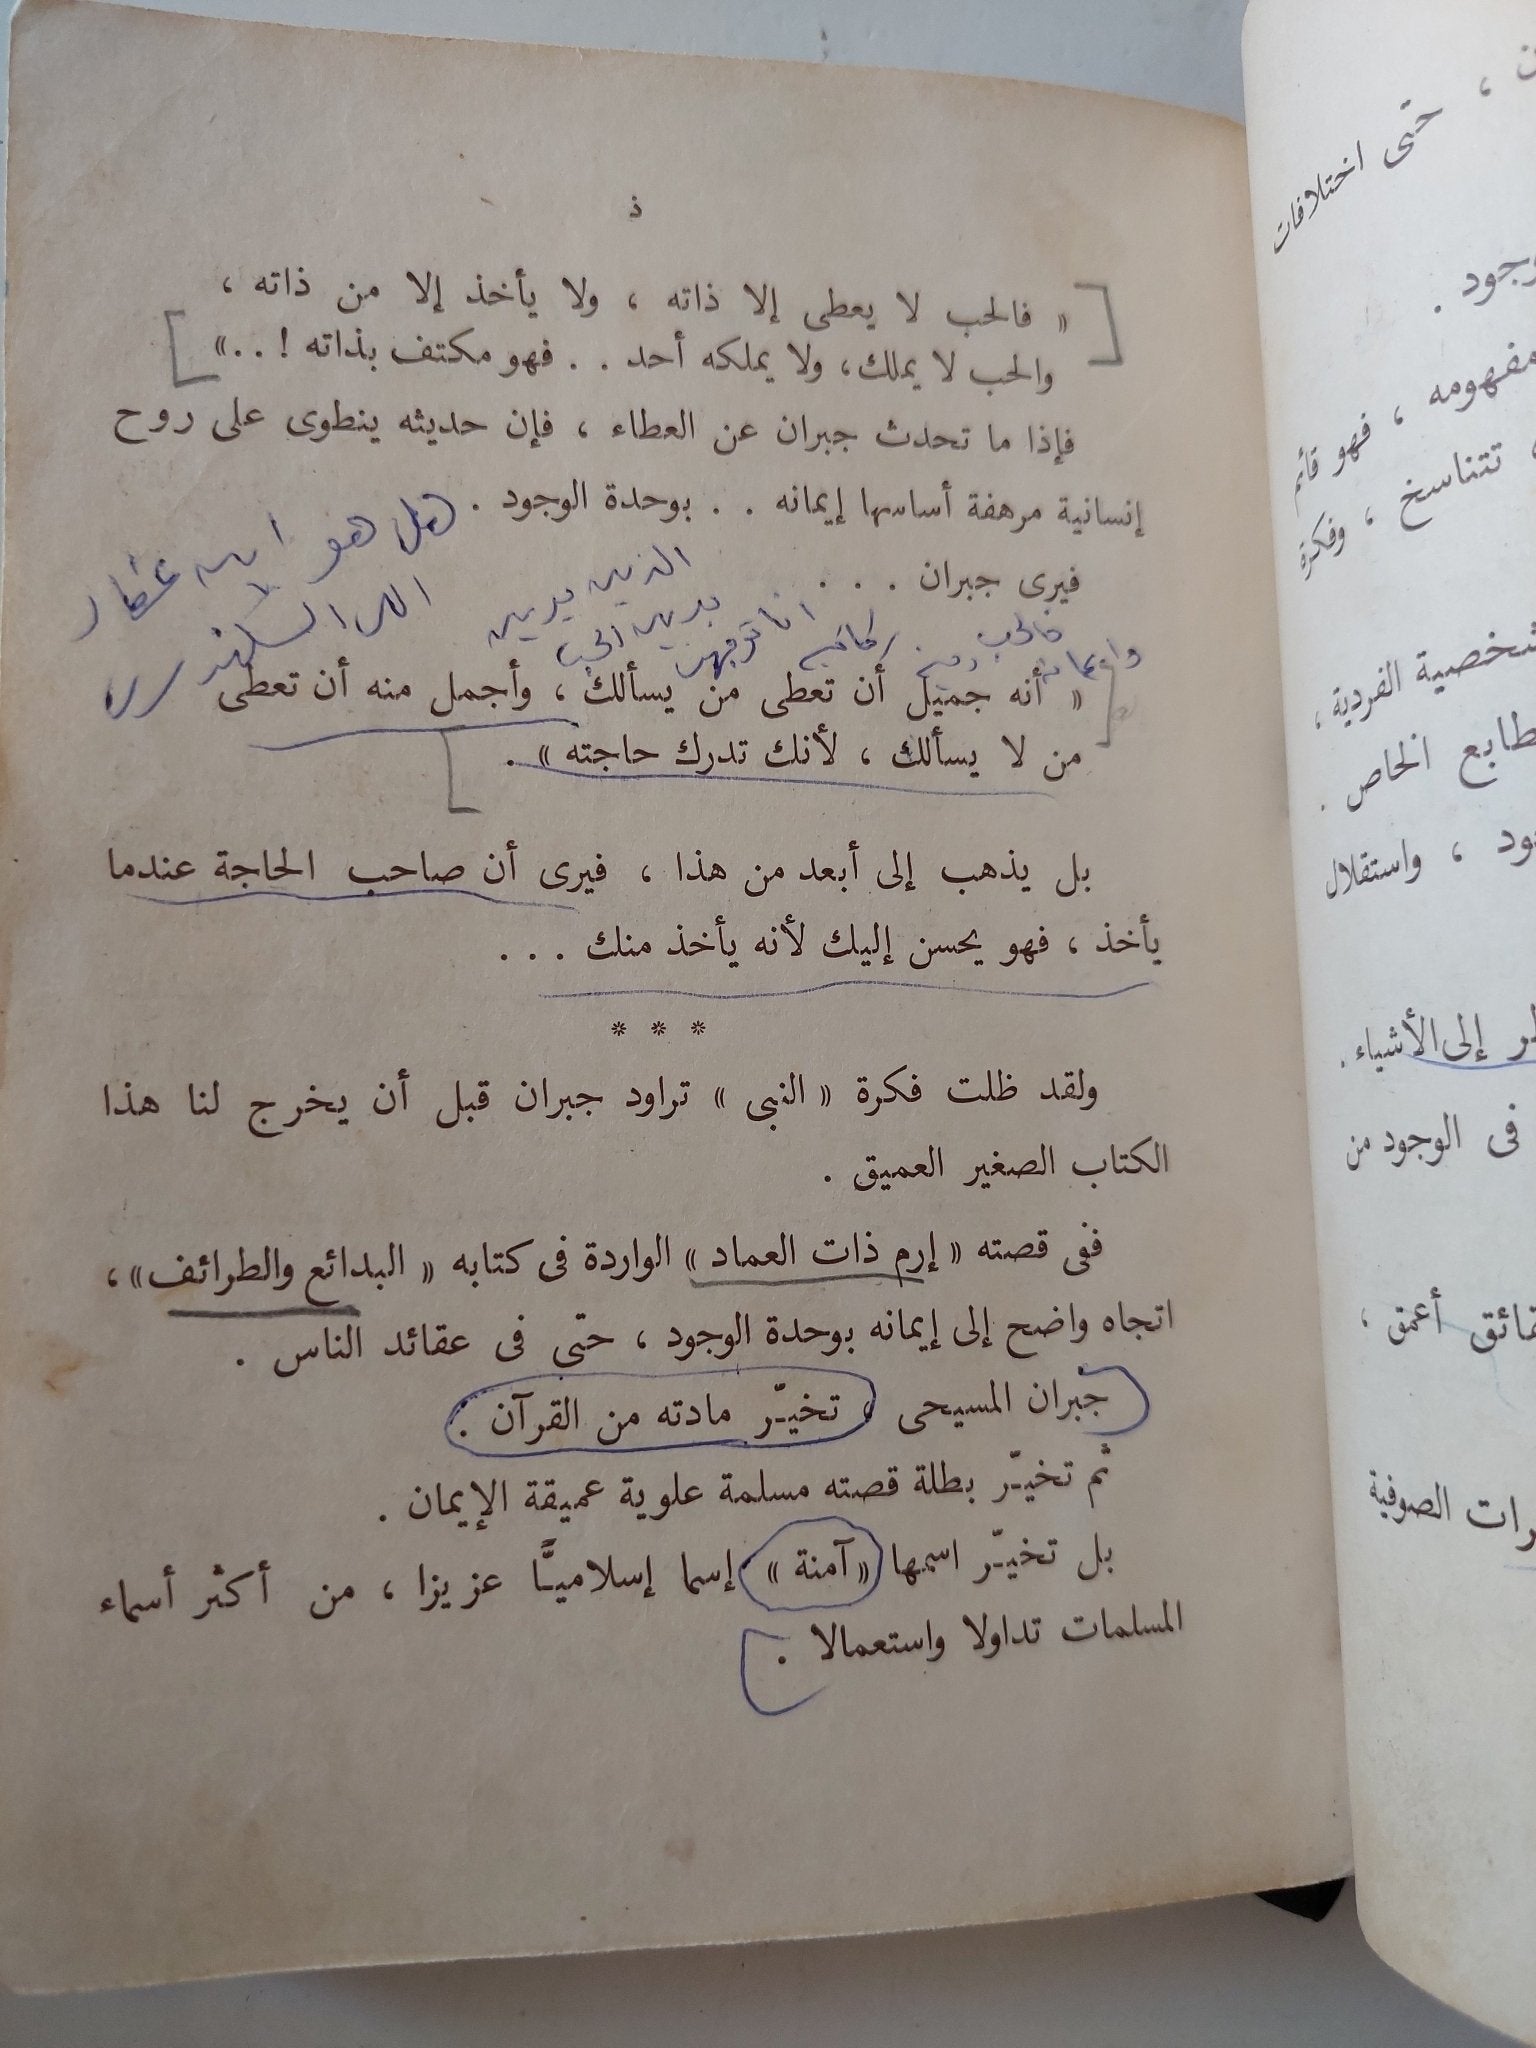 ذ
« فالحب لا يعطى إلا ذاته ، ولا يأخذ إلا من ذاته ،
والحب لا يملك ، ولا يملكه أحد . . فهو مكتف بذاته ! . . »
فإذا ما تحدث جبران عن العطاء ، فإن حديثه ينطوى على روح
إنسانية مرهفة أساسها إيمانه . . بوحدة الوجود .
هل هو ابن عطاء
الله السكندرى
فيرى جبران . . .
« أنه جميل أن تعطى من يسألك ، وأجمل منه أن تعطى
من لا يسألك ، لأنك تدرك حاجته » .
بل يذهب إلى أبعد من هذا ، فيرى أن صاحب الحاجة عندما
يأخذ ، فهو يحسن إليك لأنه يأخذ منك . . .
* * *
ولقد ظلت فكرة « النبى » تراود جبران قبل أن يخرج لنا هذا
الكتاب الصغير العميق .
ففى قصته « إرم ذات العماد » الواردة فى كتابه « البدائع والطرائف » ،
اتجاه واضح إلى إيمانه بوحدة الوجود ، حتى فى عقائد الناس .
جبران المسيحى ، تخيّر مادته من القرآن .
ثم تخيّر بطلة قصته مسلمة علوية عميقة الإيمان .
بل تخيّر اسمها « آمنة » إسما إسلاميًّا عزيزا ، من أكثر أسماء
المسلمات تداولا واستعمالا .
، حتى اختلافات
مفهومه ، فهو قائم
، تتناسخ ، وفكرة
الفردية ،
الخاص .
، واستقلال
إلى الأشياء .
فى الوجود من
أعمق ،
الصوفية